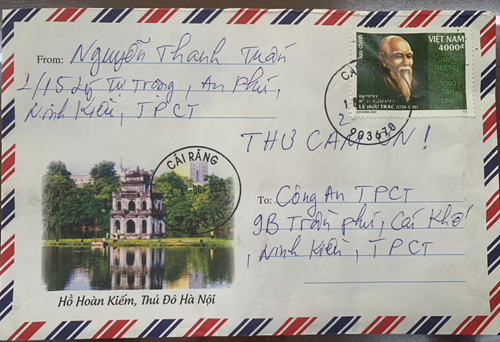 From: Nguyễn Thanh Tuấn
1/15 Lý Tự Trọng, An Phú,
Ninh Kiều, TPCT
VIỆT NAM
4000đ
LÊ HỮU TRÁC
203670
THƯ CẢM ƠN!
CÁI RĂNG
To: Công An TPCT
9B Trần phú, Cái Khế,
Ninh Kiều, TPCT
Hồ Hoàn Kiếm, Thủ Đô Hà Nội